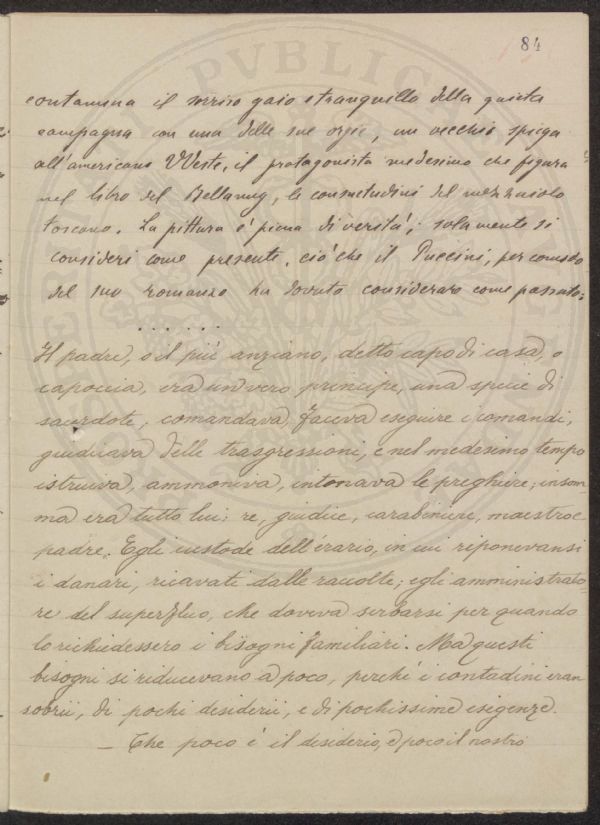 84
contamina il sorriso gaio e tranquillo della quieta
campagna con una delle sue orgie, un vecchio spiega
all'americano Weste, il protagonista medesimo che figura
nel libro del Bellamy, le consuetudini del mezzaiolo
toscano. La pittura è piena di verità; solamente si
consideri come presente, ciò che il Puccini, per comodo
del suo romanzo ha dovuto considerare come passato:
. . . . . .
Il padre, o il più anziano, detto capo di casa, o
capoccia, era un vero principe, una specie di
sacerdote, comandava, faceva eseguire i comandi,
giudicava delle trasgressioni, e nel medesimo tempo
istruiva, ammoniva, intonava le preghiere; insom-
ma era tutto lui: re, giudice, carabiniere, maestro e
padre. Egli custode dell'erario, in cui riponevansi
i danari, ricavati dalle raccolte; egli amministrato-
re del superfluo, che doveva serbarsi per quando
lo richiedessero i bisogni familiari. Ma questi
bisogni si riducevano a poco, perchè i contadini eran
sobrii, di pochi desiderii, e di pochissime esigenze.
— Che poco è il desiderio, e poco il nostro